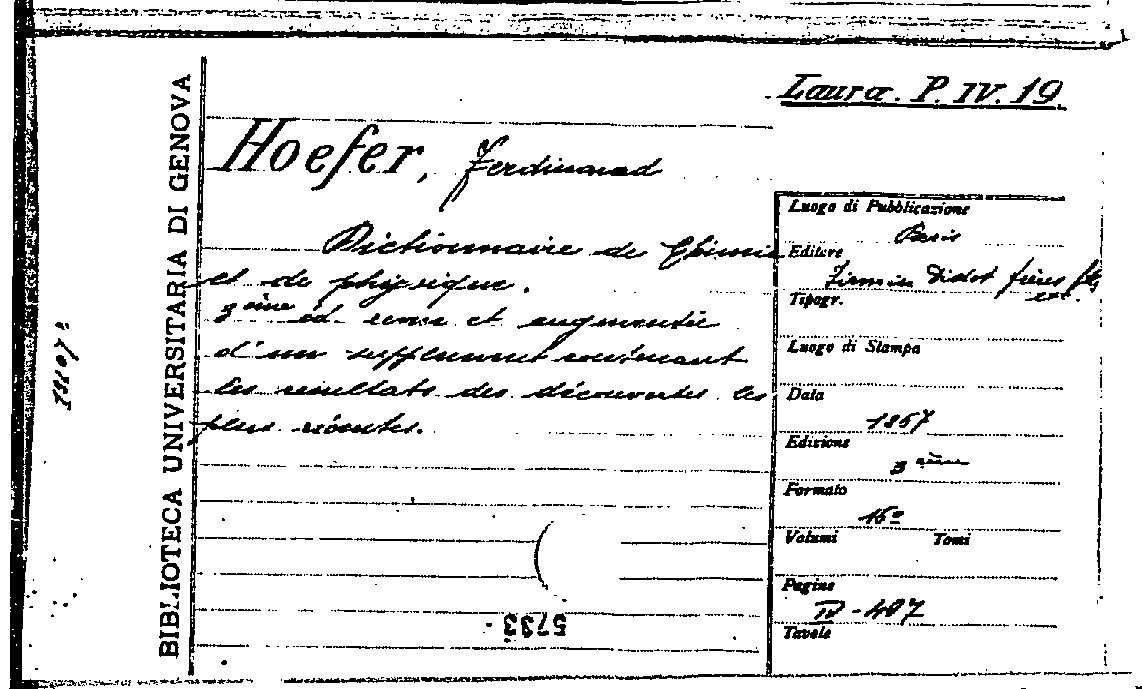 Laura. P. IV. 19.
BIBLIOTECA UNIVERSITARIA DI GENOVA
Hoefer, Ferdinand
Dictionnaire de Chimie
et de physique.
3eme éd. revue et augmentée
d'un supplement contenant
les resultats des découvertes les
plus récentes.
Luogo di Pubblicazione
Paris
Editore
Firmin Didot frères fils
etc.
Tipogr.
Luogo di Stampa
Data
1857
Edizione
3 ème
Formato
16º
Volumi Tomi
Pagine
IV - 487
Tavole
5733.